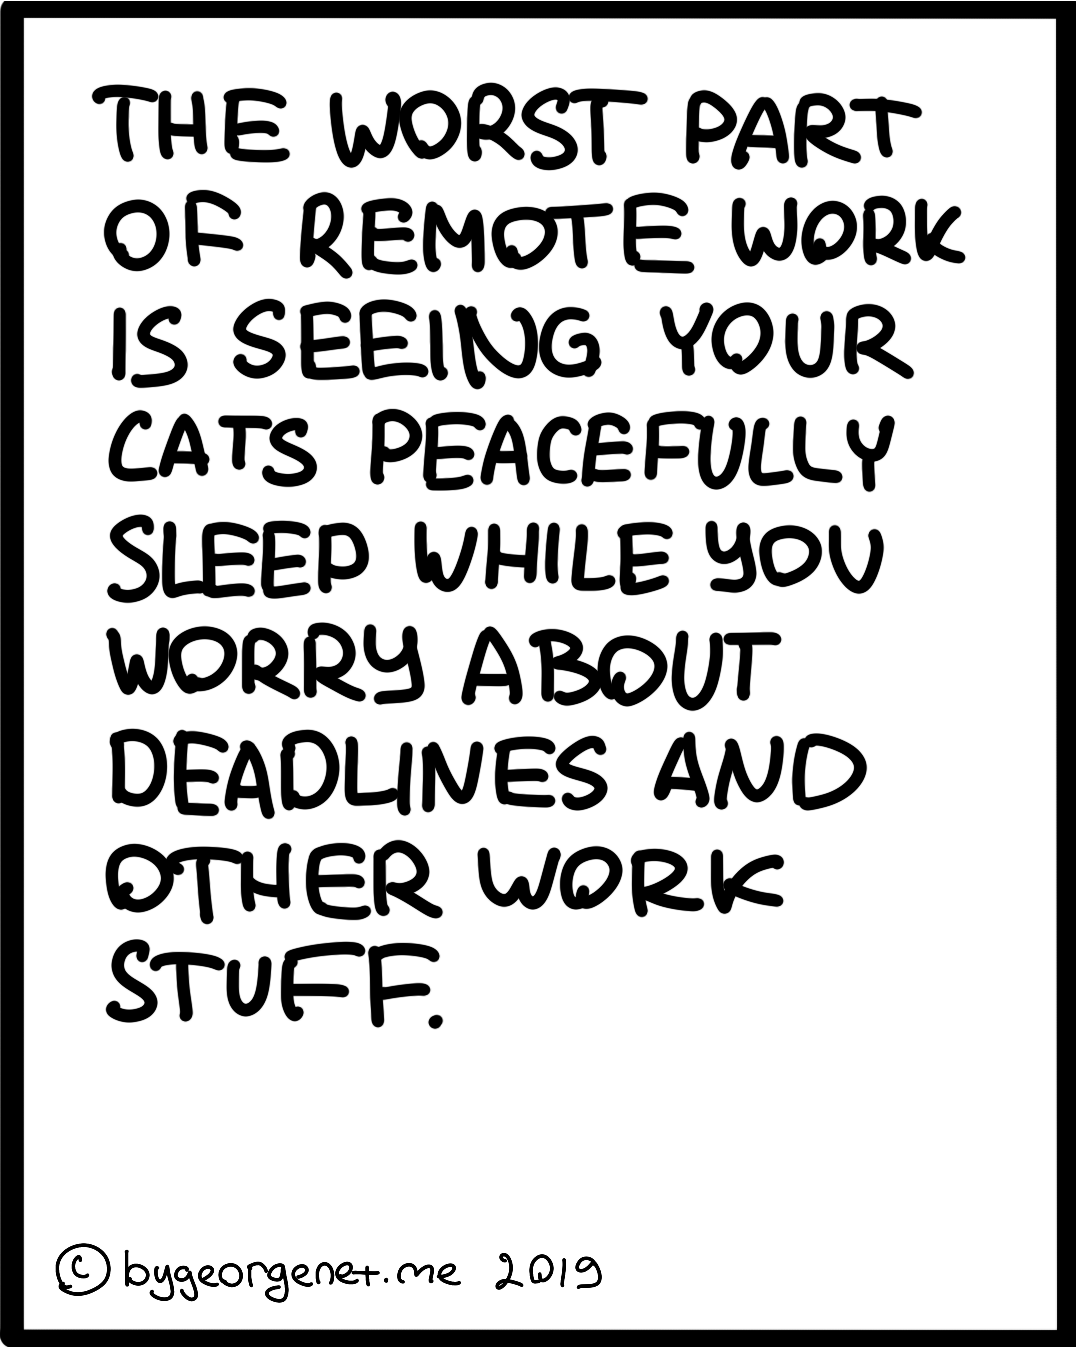 THE WORST PART
OF REMOTE WORK
IS SEEING YOUR
CATS PEACEFULLY
SLEEP WHILE YOU
WORRY ABOUT
DEADLINES AND
OTHER WORK
STUFF.
© bygeorgenet.me 2019